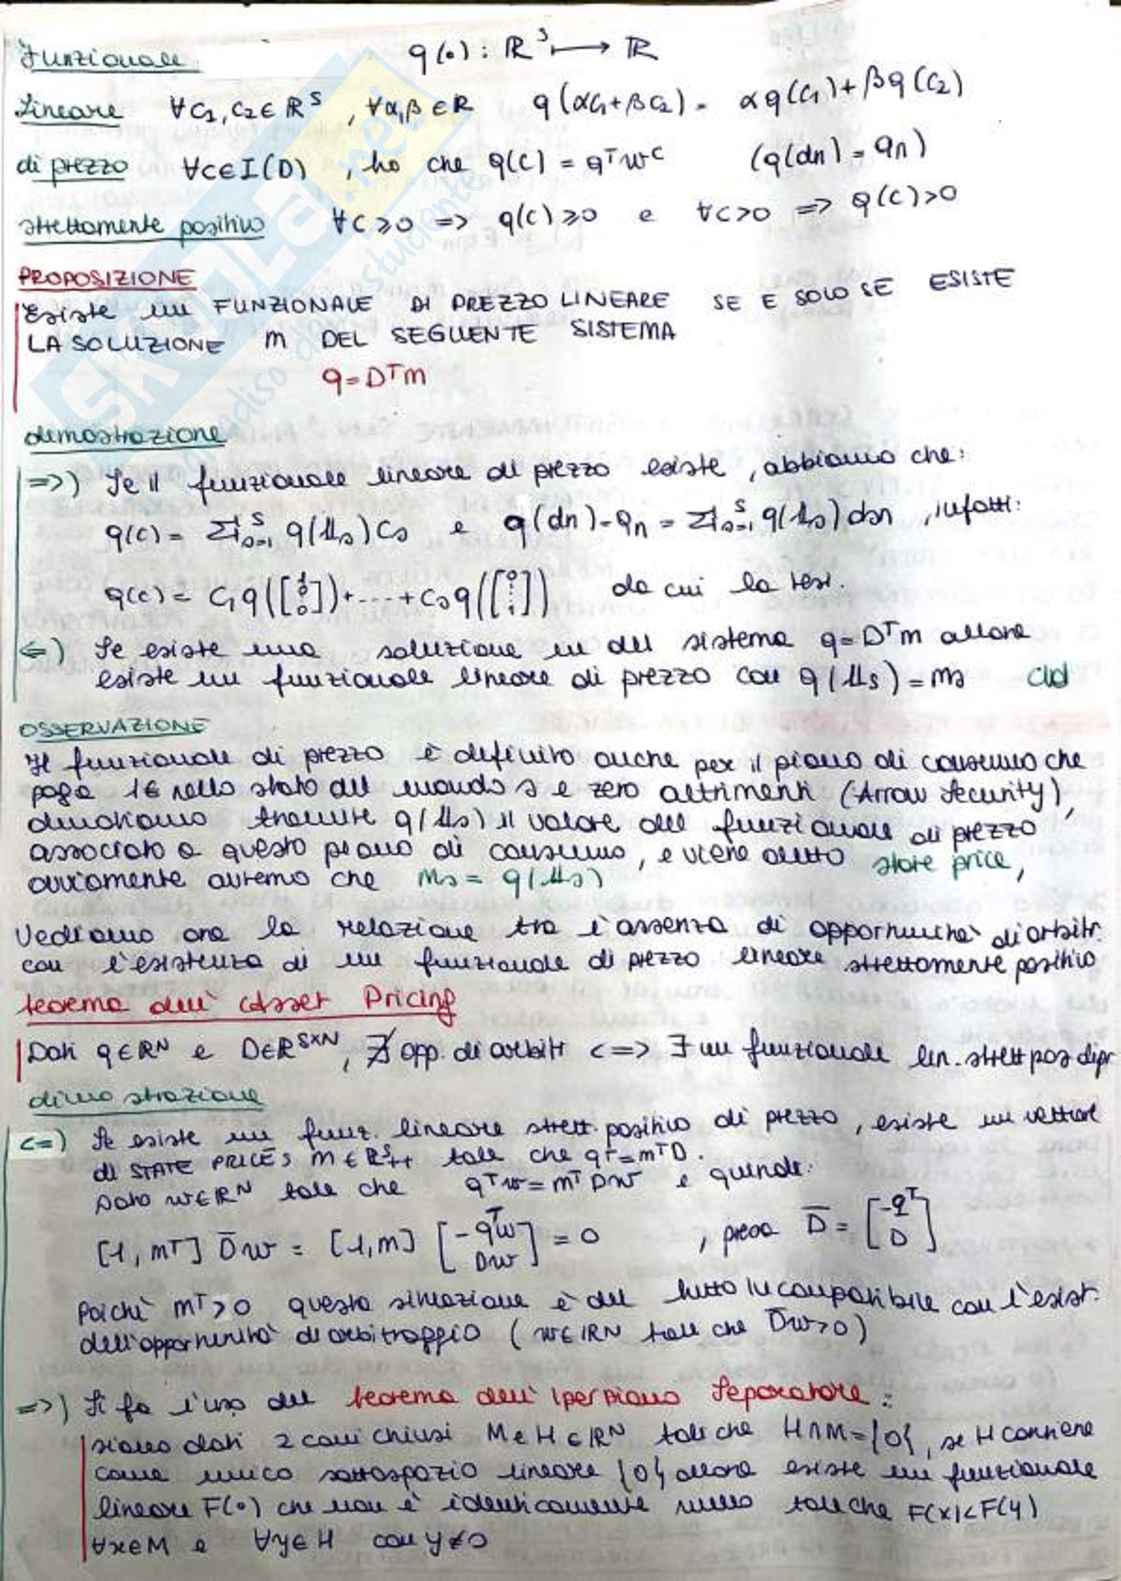 Funzionale q(·): ℝ^S ⟼ ℝ
Lineare ∀C1, C2 ∈ ℝ^S, ∀α,β ∈ ℝ q(αC1+βC2) = αq(C1)+βq(C2)
di prezzo ∀C∈I(D), ho che q(C) = q^T w^C (q(dn) = qn)
strettamente positivo ∀C≥0 => q(C)≥0 e ∀C>0 => q(C)>0
PROPOSIZIONE
Esiste un FUNZIONALE DI PREZZO LINEARE SE E SOLO SE ESISTE
LA SOLUZIONE m DEL SEGUENTE SISTEMA
q=D^T m
dimostrazione
=>) Se il funzionale lineare di prezzo esiste, abbiamo che:
q(c) = Σ_{s=1}^S q(𝟙s) Cs e q(dn) = qn = Σ_{s=1}^S q(𝟙s) dsn, infatti:
q(c) = C1 q([1 ⋮ 0])+....+Cs q([0 ⋮ 1]) da cui la tesi.
<=) Se esiste una soluzione m del sistema q=D^T m allora
esiste un funzionale lineare di prezzo con q(𝟙s) = ms cvd
OSSERVAZIONE
Il funzionale di prezzo è definito anche per il piano di consumo che
paga 1€ nello stato del mondo s e zero altrimenti (Arrow Security),
denotiamo tramite q(𝟙s) il valore del funzionale di prezzo
associato a questo piano di consumo, e viene detto state price,
ovviamente avremo che ms = q(𝟙s)
Vediamo ora la relazione tra l'assenza di opportunità di arbitr.
con l'esistenza di un funzionale di prezzo lineare strettamente positivo
teorema dell'Asset Pricing
Dati q∈ℝ^N e D∈ℝ^{S×N}, ∄ opp. di arbitr <=> ∃ un funzionale lin. strett pos di pr
dimostrazione
<=) Se esiste un funz. lineare strett. positivo di prezzo, esiste un vettore
di STATE PRICES m∈ℝ^S_{++} tale che q^T=m^T D.
Dato w∈ℝ^N tale che q^T w = m^T D w e quindi:
[1, m^T] D̄w = [1, m] [-q^T w ; Dw] = 0 , preso D̄ = [-q^T ; D]
Poiché m^T>0 questa situazione è del tutto incompatibile con l'esist.
dell'opportunità di arbitraggio (w∈ℝ^N tale che D̄w>0)
=>) Si fa l'uso del teorema dell'Iperpiano Separatore:
siano dati 2 coni chiusi M e H ∈ℝ^N tali che H∩M={0}, se H contiene
come unico sottospazio lineare {0} allora esiste un funzionale
lineare F(·) che non è identicamente nullo tale che F(x)<F(y)
∀x∈M e ∀y∈H con y≠0